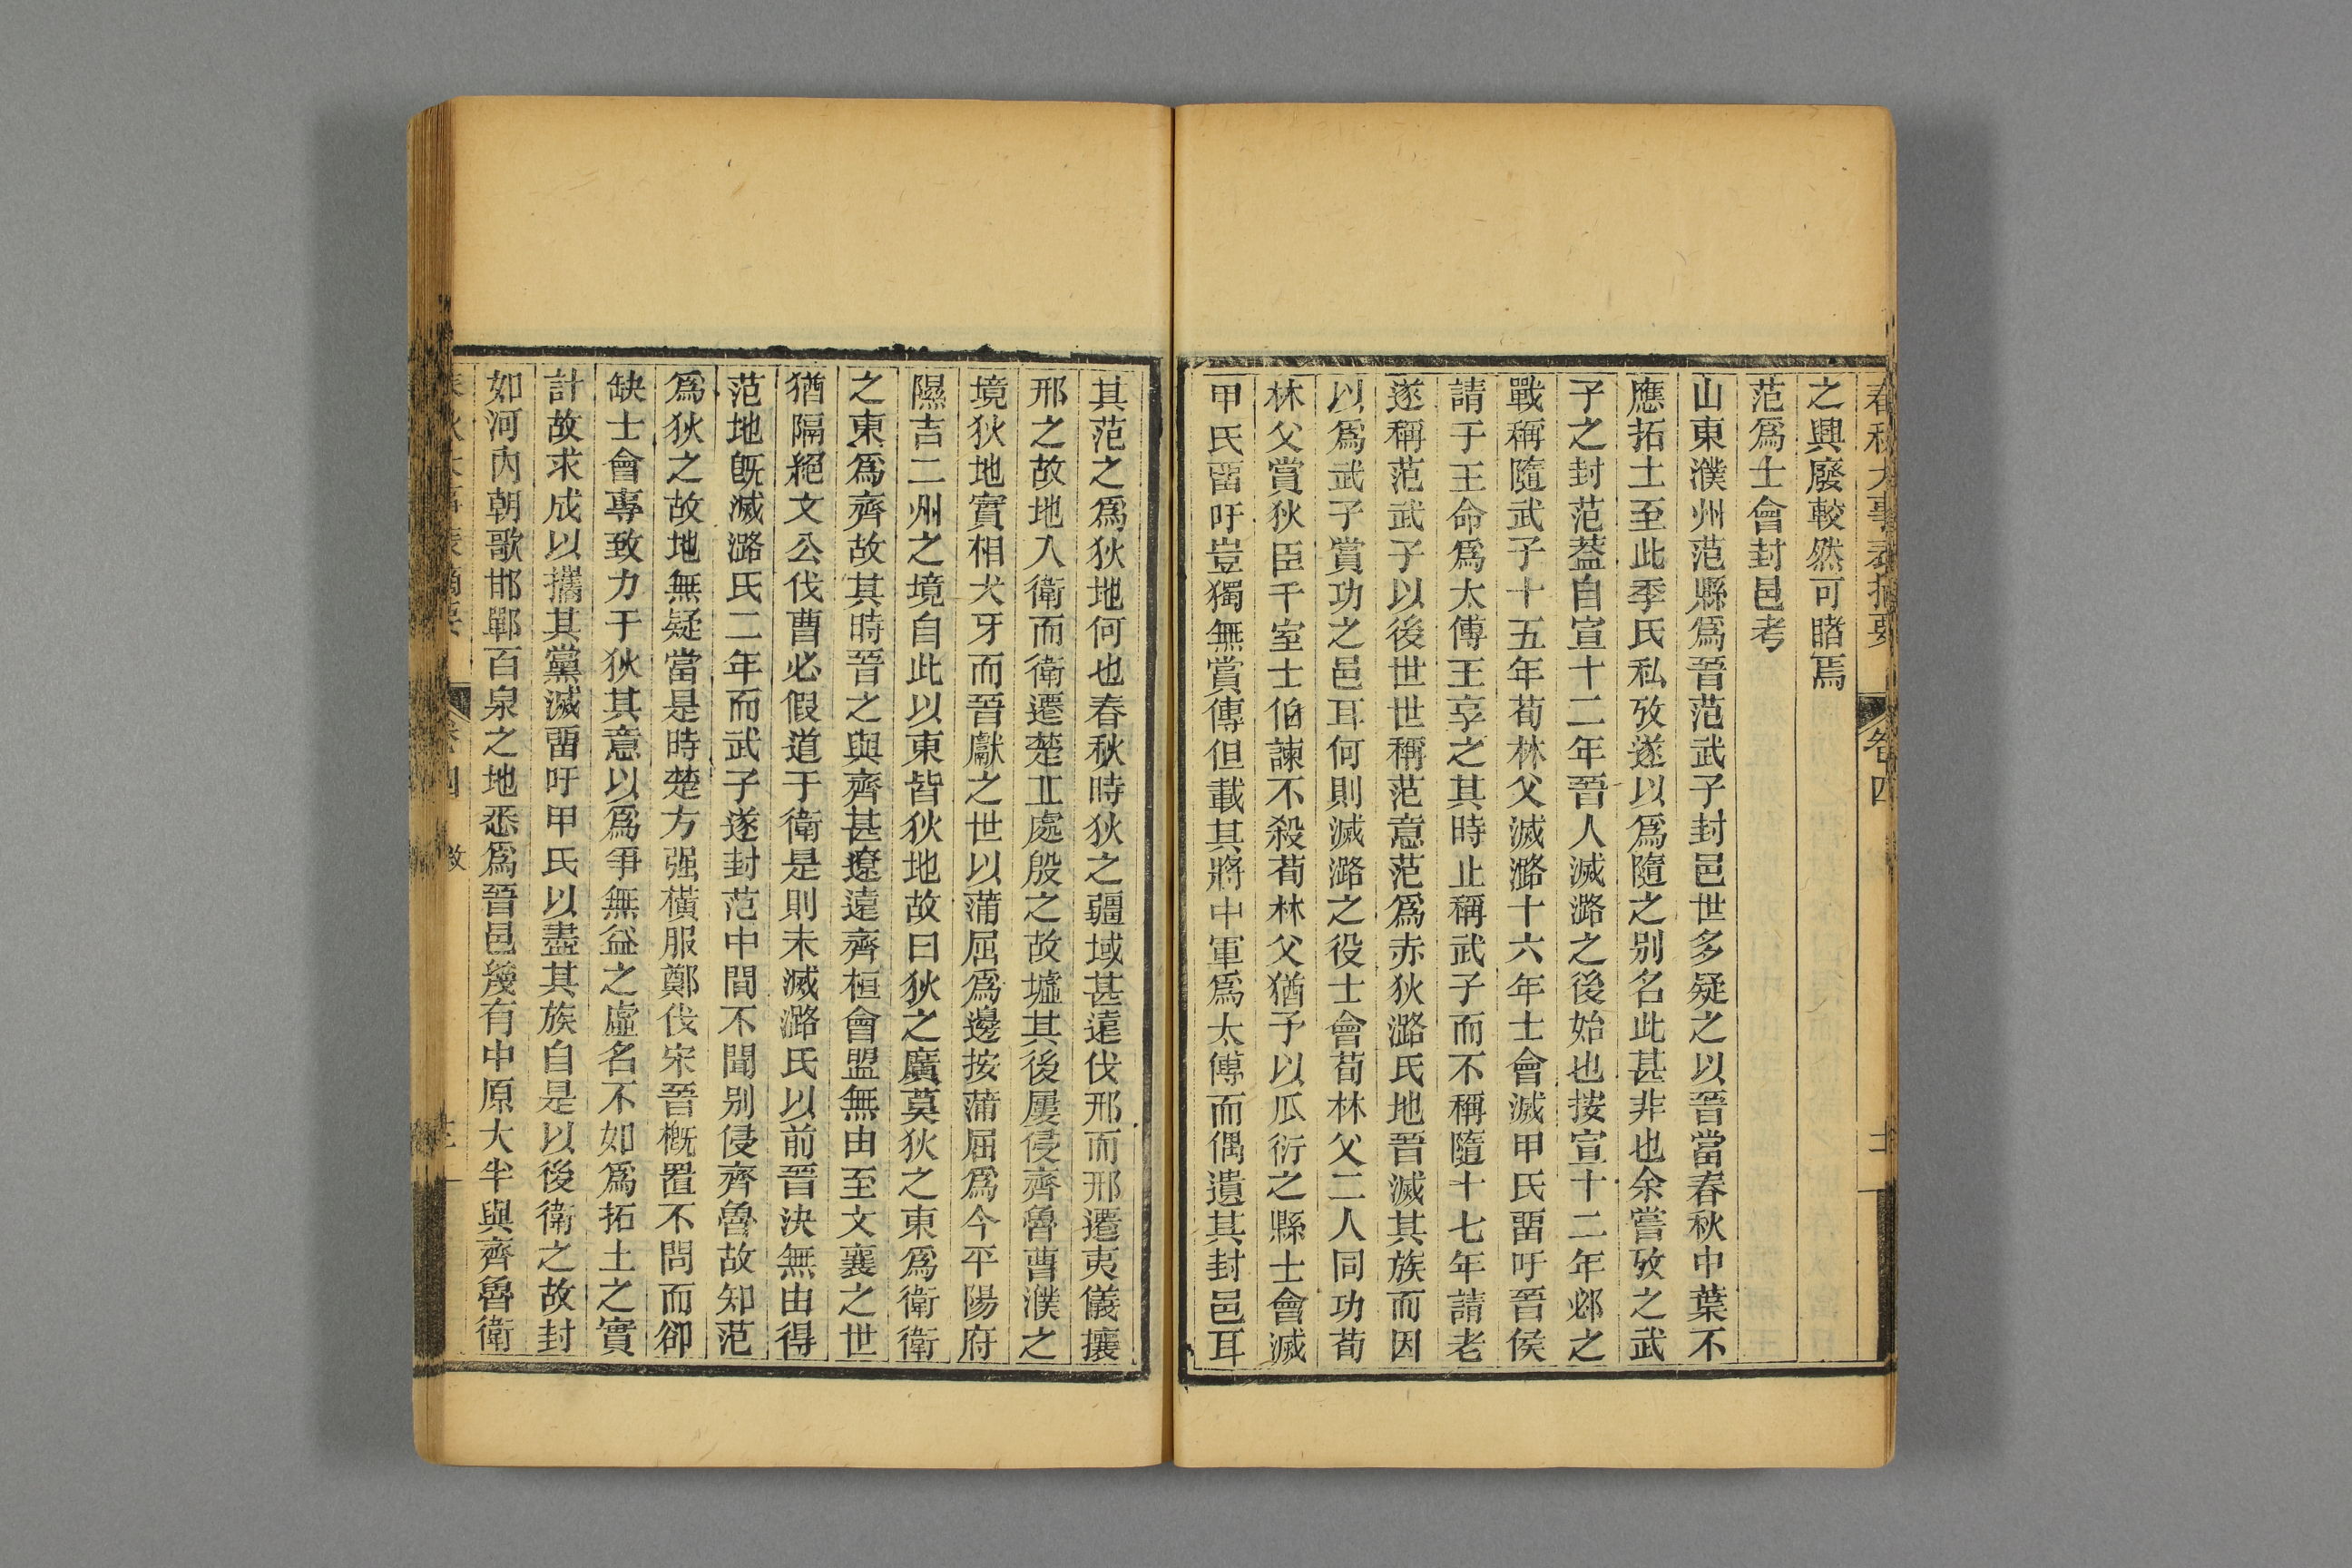 春秋大事表摘要 卷四 十
之興廢較然可睹焉
范爲士會封邑考
山東濮州范縣爲晉范武子封邑世多疑之以晉當春秋中葉不
應拓土至此季氏私攷遂以爲隨之别名此甚非也余嘗攷之武
子之封范葢自宣十二年晉人滅潞之後始也按宣十二年邲之
戰稱隨武子十五年荀林父滅潞十六年士會滅甲氏畱吁晉侯
請于王命爲太傅王享之其時止稱武子而不稱隨十七年請老
遂稱范武子以後世世稱范意范爲赤狄潞氏地晉滅其族而因
以爲武子賞功之邑耳何則滅潞之役士會荀林父二人同功荀
林父賞狄臣千室士伯諫不殺荀林父猶予以瓜衍之縣士會滅
甲氏畱吁豈獨無賞傳但載其將中軍爲太傅而偶遺其封邑耳
其范之爲狄地何也春秋時狄之疆域甚遠伐邢而邢遷夷儀攘
邢之故地入衛而衛遷楚丘處殷之故墟其後屢侵齊魯曹濮之
境狄地實相犬牙而晉獻之世以蒲屈爲邊按蒲屈爲今平陽府
隰吉二州之境自此以東皆狄地故曰狄之廣莫狄之東爲衛衛
之東爲齊故其時晉之與齊甚遼遠齊桓會盟無由至文襄之世
猶隔絕文公伐曹必假道于衛是則未滅潞氏以前晉決無由得
范地旣滅潞氏二年而武子遂封范中間不聞别侵齊魯故知范
爲狄之故地無疑當是時楚方强橫服鄭伐宋晉概置不問而卻
缺士會專致力于狄其意以爲爭無益之虛名不如爲拓土之實
計故求成以攜其黨滅畱吁甲氏以盡其族自是以後衛之故封
如河內朝歌邯鄲百泉之地悉爲晉邑幾有中原大半與齊魯衛
春秋大事表摘要 卷四 攷